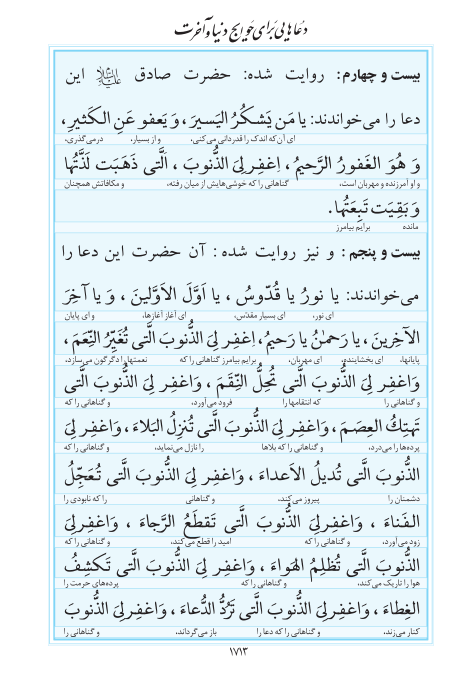 دعاهایی برای حوایج دنیا و آخرت
بیست و چهارم: روایت شده: حضرت صادق علیه‌السلام این
دعا را می‌خواندند: یا مَن یَشکُرُ الیَسیرَ، وَ یَعفو عَنِ الکَثیرِ،
ای آن‌که اندک را قدردانی می‌کنی، و از بسیار، درمی‌گذری،
وَ هُوَ الغَفورُ الرَّحیمُ، اِغفِر لِیَ الذُّنوبَ، الَّتی ذَهَبَت لَذَّتُها
و او آمرزنده و مهربان است، گناهانی را که خوشی‌هایش از میان رفته، و مکافاتش همچنان
وَ بَقِیَت تَبِعَتُها.
مانده برایم بیامرز
بیست و پنجم: و نیز روایت شده: آن حضرت این دعا را
می‌خواندند: یا نورُ یا قُدّوسُ، یا اَوَّلَ الاَوَّلینَ، وَ یا آخِرَ
ای نور، ای بسیار مقدّس، ای آغاز آغازها، و ای پایان
الآخِرینَ، یا رَحمٰنُ یا رَحیمُ، اِغفِر لِیَ الذُّنوبَ الَّتی تُغَیِّرُ النِّعَمَ،
پایانها، ای بخشاینده، ای مهربان، برایم بیامرز گناهانی را که نعمتها را دگرگون می‌سازد،
وَاغفِر لِیَ الذُّنوبَ الَّتی تُحِلُّ النِّقَمَ، وَاغفِر لِیَ الذُّنوبَ الَّتی
و گناهانی را که انتقامها را فرود می‌آورد، و گناهانی را که
تَهتِکُ العِصَمَ، وَاغفِر لِیَ الذُّنوبَ الَّتی تُنزِلُ البَلاءَ، وَاغفِر لِیَ
پرده‌ها را می‌درد، و گناهانی را که بلاها را نازل می‌نماید، و گناهانی را که
الذُّنوبَ الَّتی تُدیلُ الاَعداءَ، وَاغفِر لِیَ الذُّنوبَ الَّتی تُعَجِّلُ
دشمنان را پیروز می‌کند، و گناهانی را که نابودی را
الفَناءَ، وَاغفِر لِیَ الذُّنوبَ الَّتی تَقطَعُ الرَّجاءَ، وَاغفِر لِیَ
زود می‌آورد، و گناهانی را که امید را قطع می‌کند، و گناهانی را که
الذُّنوبَ الَّتی تُظلِمُ الهَواءَ، وَاغفِر لِیَ الذُّنوبَ الَّتی تَکشِفُ
هوا را تاریک می‌کند، و گناهانی را که پرده‌های حرمت را
الغِطاءَ، وَاغفِر لِیَ الذُّنوبَ الَّتی تَرُدُّ الدُّعاءَ، وَاغفِر لِیَ الذُّنوبَ
کنار می‌زند، و گناهانی را که دعا را باز می‌گرداند، و گناهانی را
۱۷۱۳